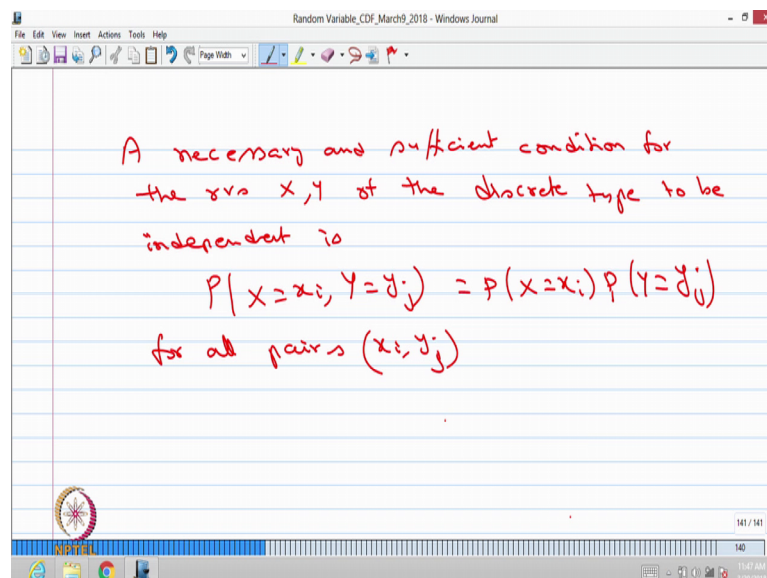 Random Variable_CDF_March9_2018 - Windows Journal
File Edit View Insert Actions Tools Help
Page Width
A necessary and sufficient condition for
the rvs X, Y of the discrete type to be
independent is
P(X=xi, Y=yj) = P(X=xi) P(Y=yj)
for all pairs (xi, yj)
NPTEL
141 / 141
140
11:47 AM